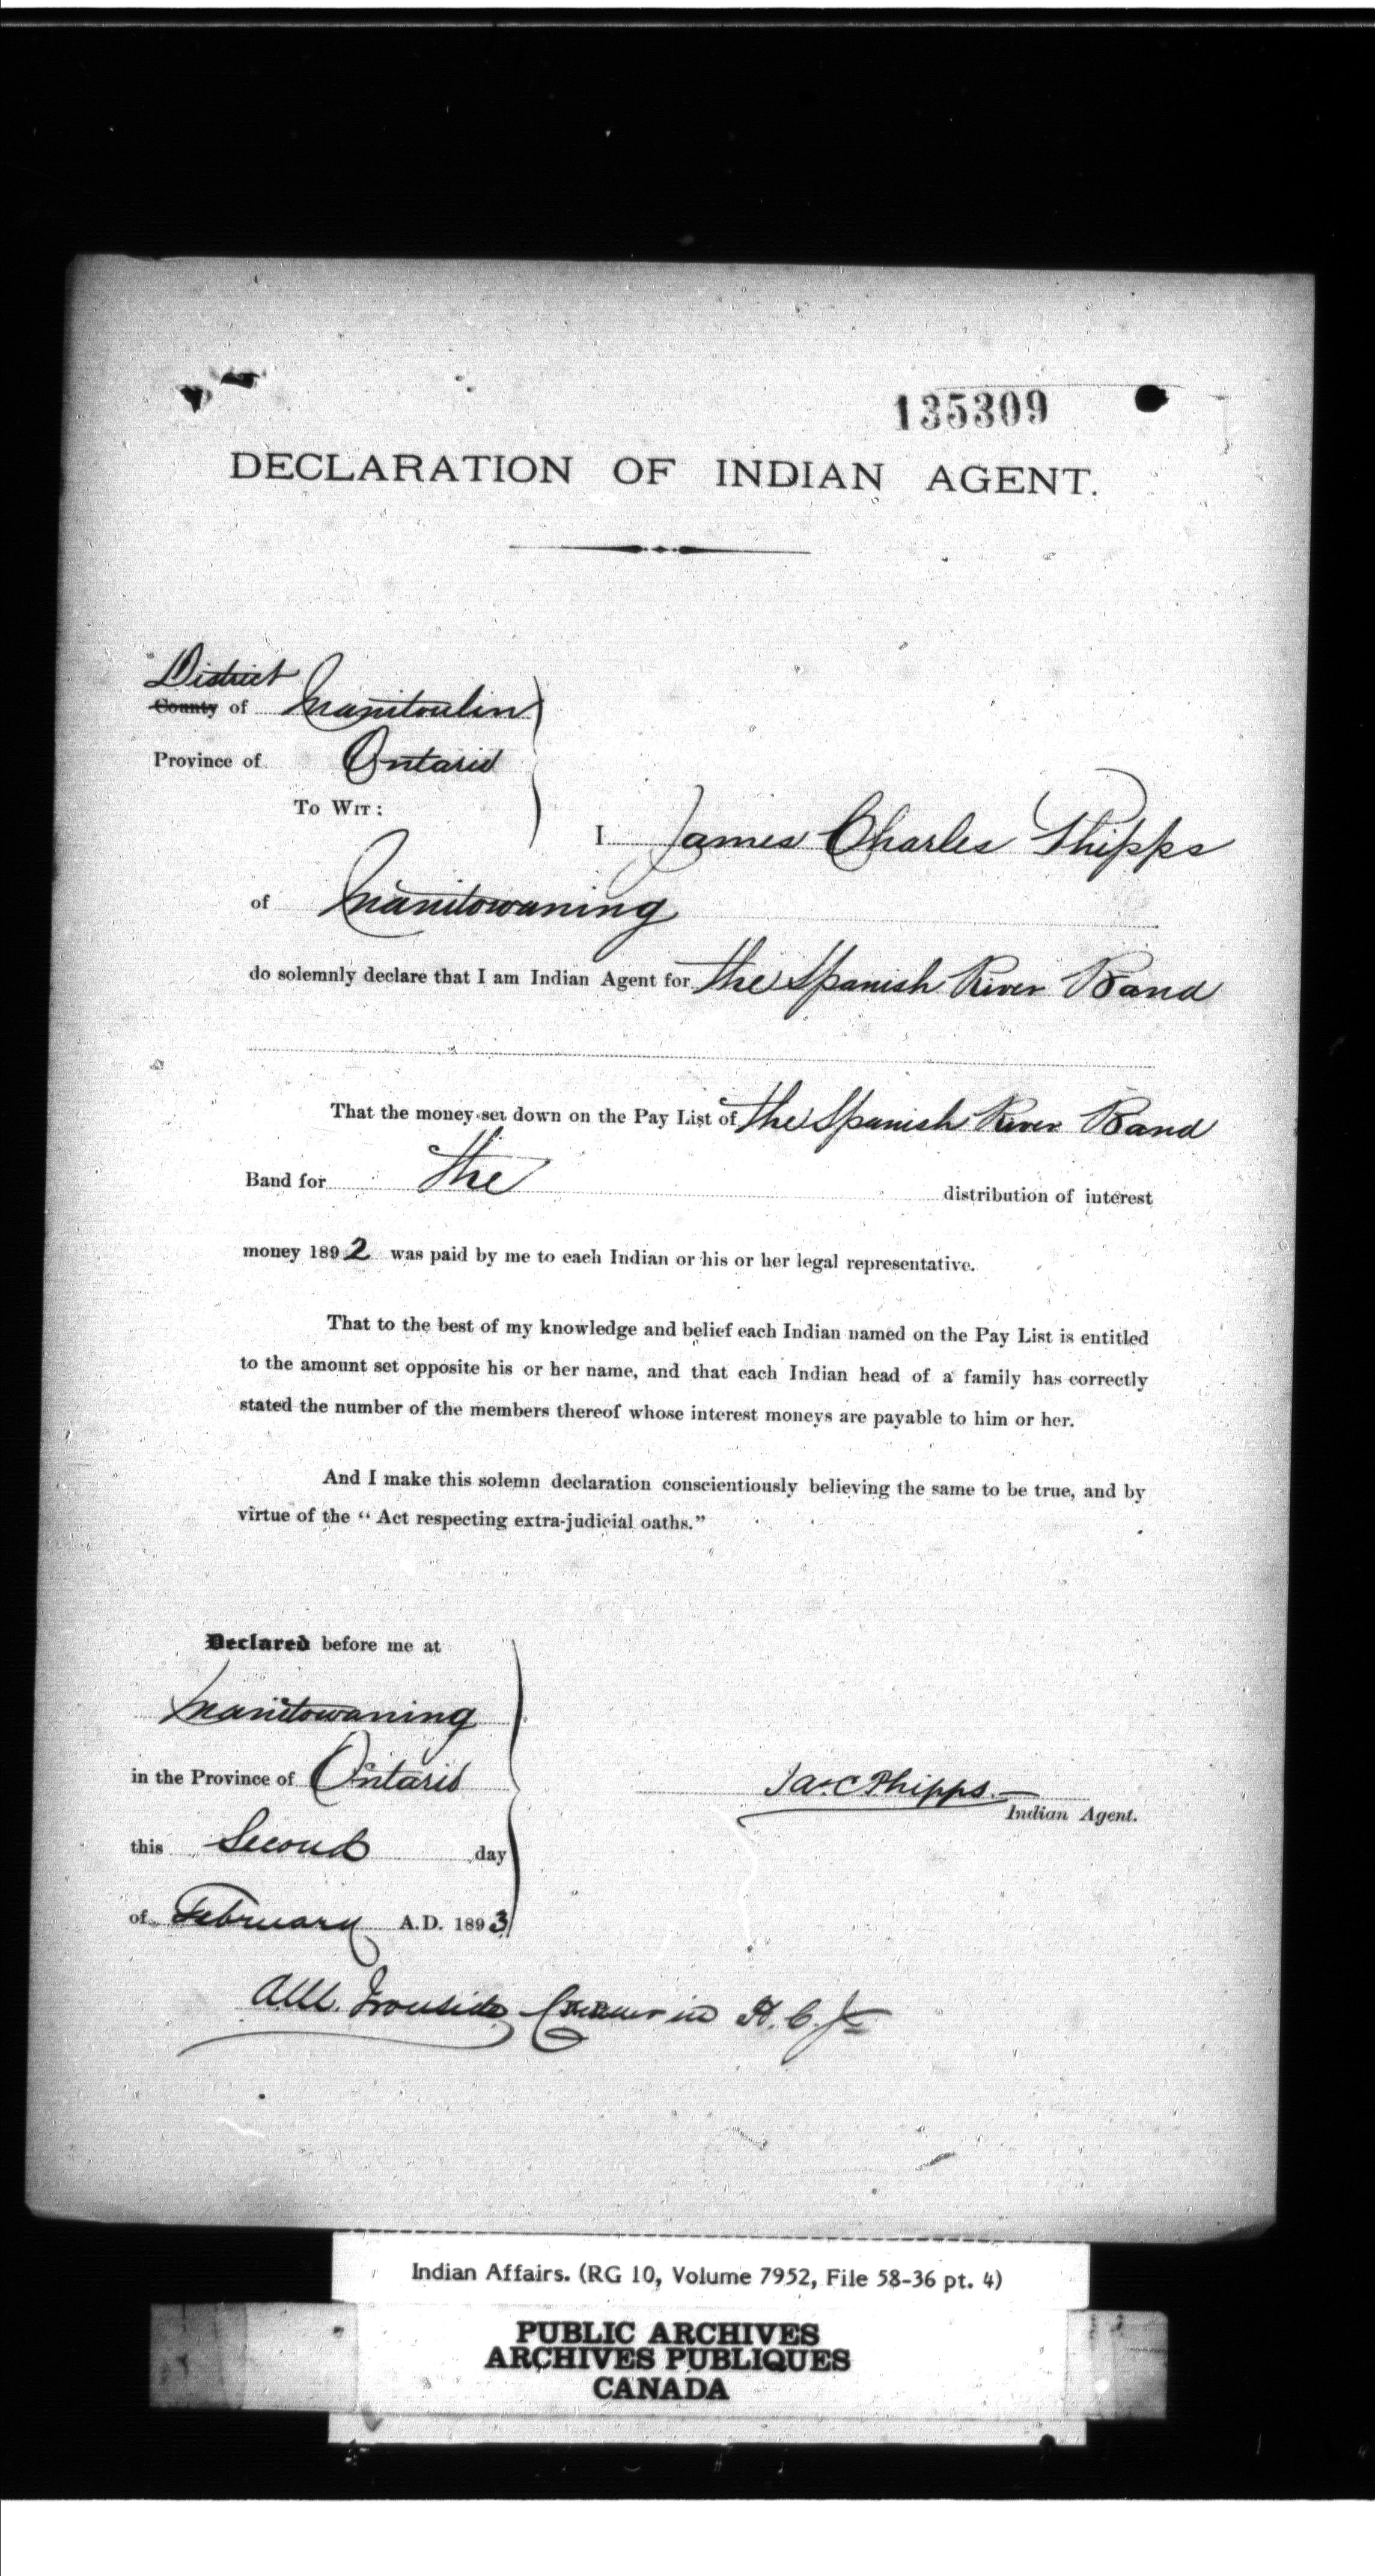 135309
DECLARATION OF INDIAN AGENT.
District
County of Manitoulin
Province of Ontario
To Wit:
I James Charles Phipps
of Manitowaning
do solemnly declare that I am Indian Agent for the Spanish River Band
That the money set down on the Pay List of the Spanish River Band
Band for the distribution of interest
money 1892 was paid by me to each Indian or his or her legal representative.
That to the best of my knowledge and belief each Indian named on the Pay List is entitled
to the amount set opposite his or her name, and that each Indian head of a family has correctly
stated the number of the members thereof whose interest moneys are payable to him or her.
And I make this solemn declaration conscientiously believing the same to be true, and by
virtue of the "Act respecting extra-judicial oaths."
Declared before me at
Manitowaning
in the Province of Ontario
Jas C Phipps
Indian Agent.
this Second day
of February A.D. 1893
Ironside in H. C. J
Indian Affairs. (RG 10, Volume 7952, File 58-36 pt. 4)
PUBLIC ARCHIVES
ARCHIVES PUBLIQUES
CANADA